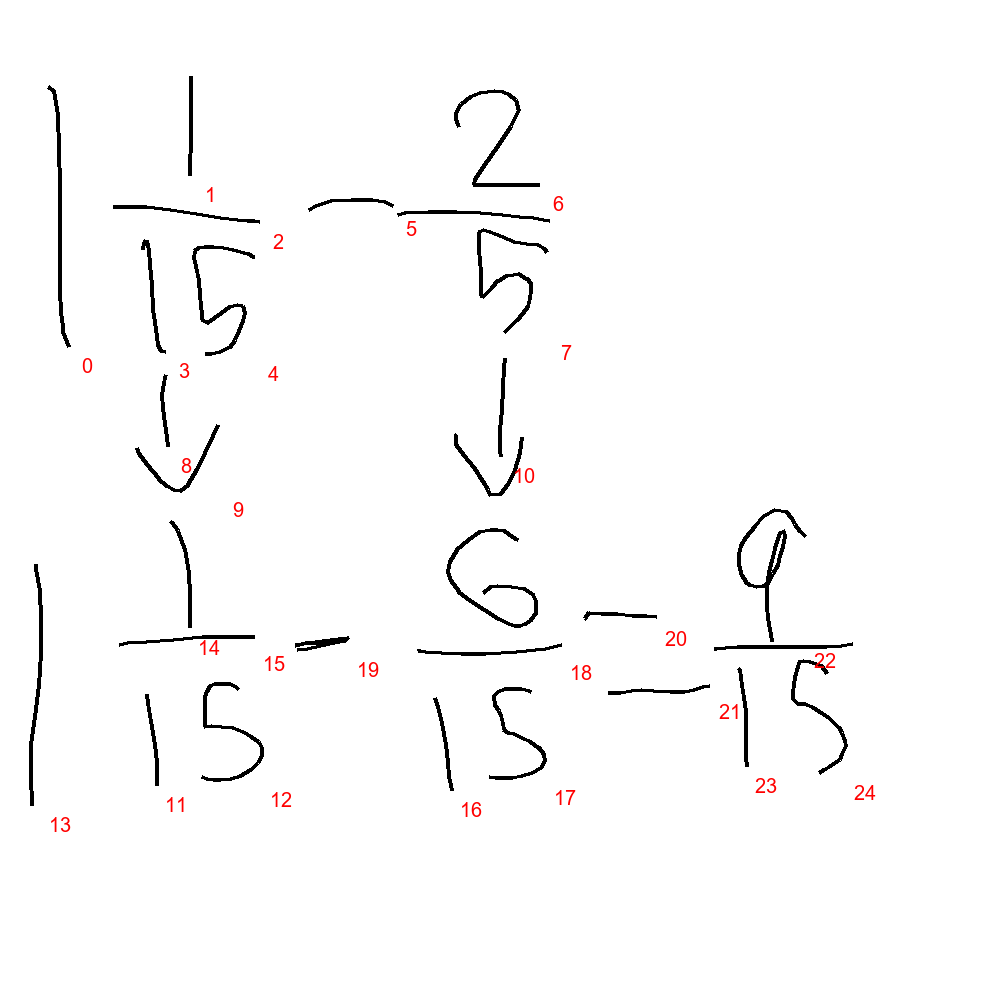 1 1/15 - 2/5
↓ ↓
1 1/15 - 6/15 = 9/15
0 1 2 3 4 5 6 7 8 9 10 11 12 13 14 15 16 17 18 19 20 21 22 23 24